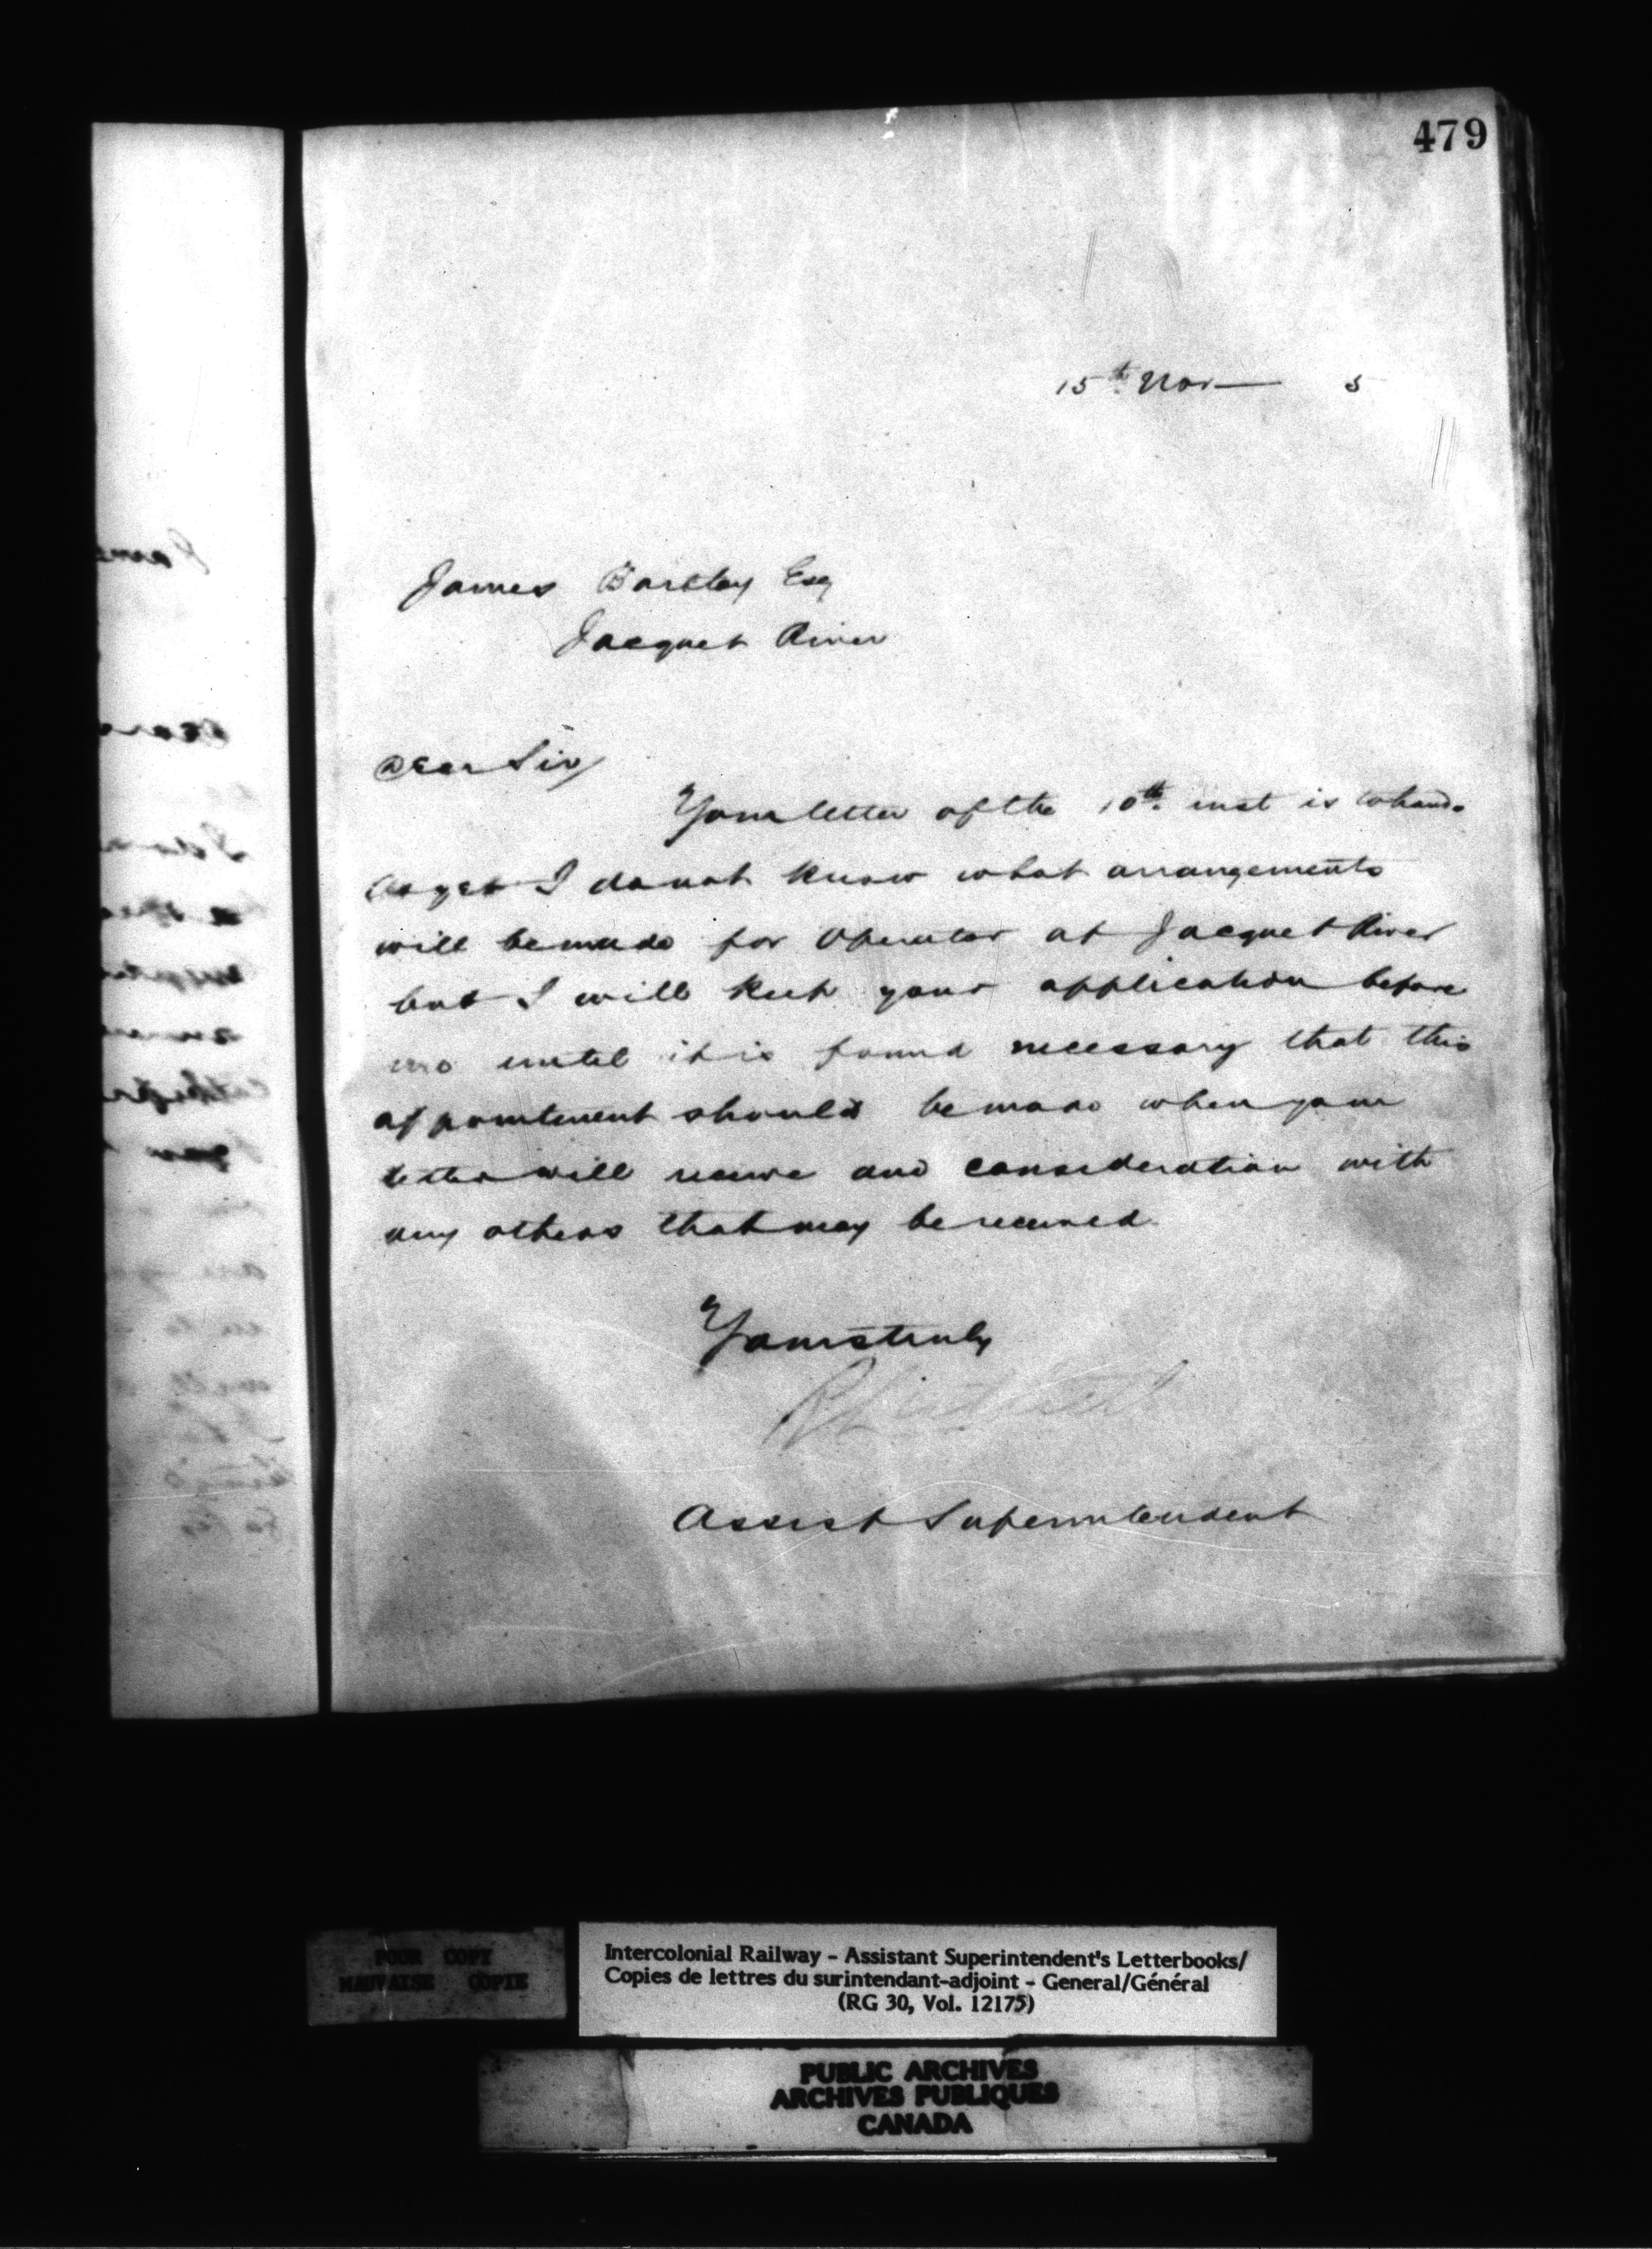 479
15th Nov— 5
James Barclay Esq
Jacquet River
Dear Sir/
Your letter of the 10th inst is to hand.
As yet I do not know what arrangements
will be made for Operator at Jacquet River
but I will keep your application before
me until it is found necessary that this
appointment should be made when your
letter will receive due consideration with
any others that may be received.
Yours truly
Assist Superintendent
POOR COPY
MAUVAISE COPIE
Intercolonial Railway - Assistant Superintendent's Letterbooks/
Copies de lettres du surintendant-adjoint - General/Général
(RG 30, Vol. 12175)
PUBLIC ARCHIVES
ARCHIVES PUBLIQUES
CANADA